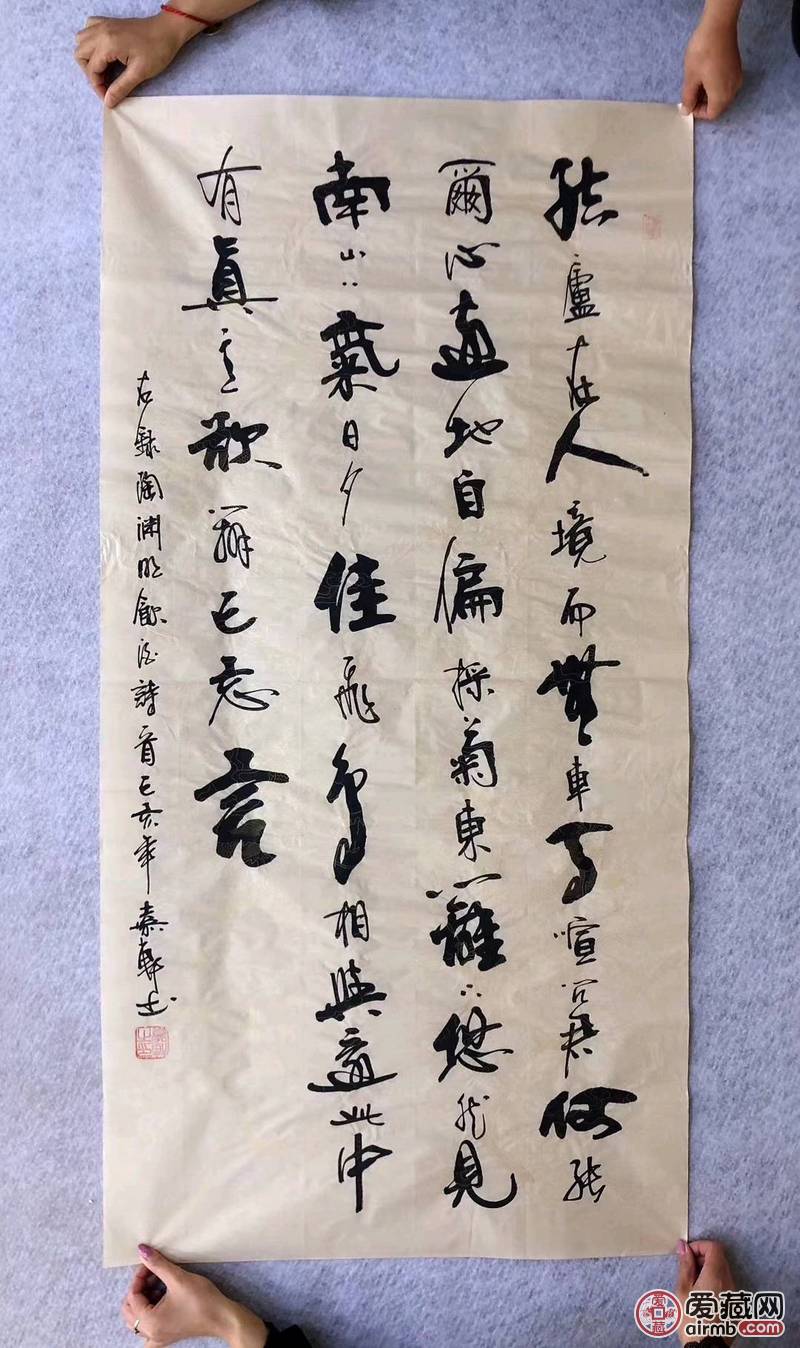 結廬在人境而無車馬喧問君何能
爾心遠地自偏採菊東籬下悠然見
南山〻氣日夕佳飛鳥相與還此中
有真意欲辨已忘言
右録陶淵明飲酒詩一首己亥年軒書
爱藏网
airmb.com